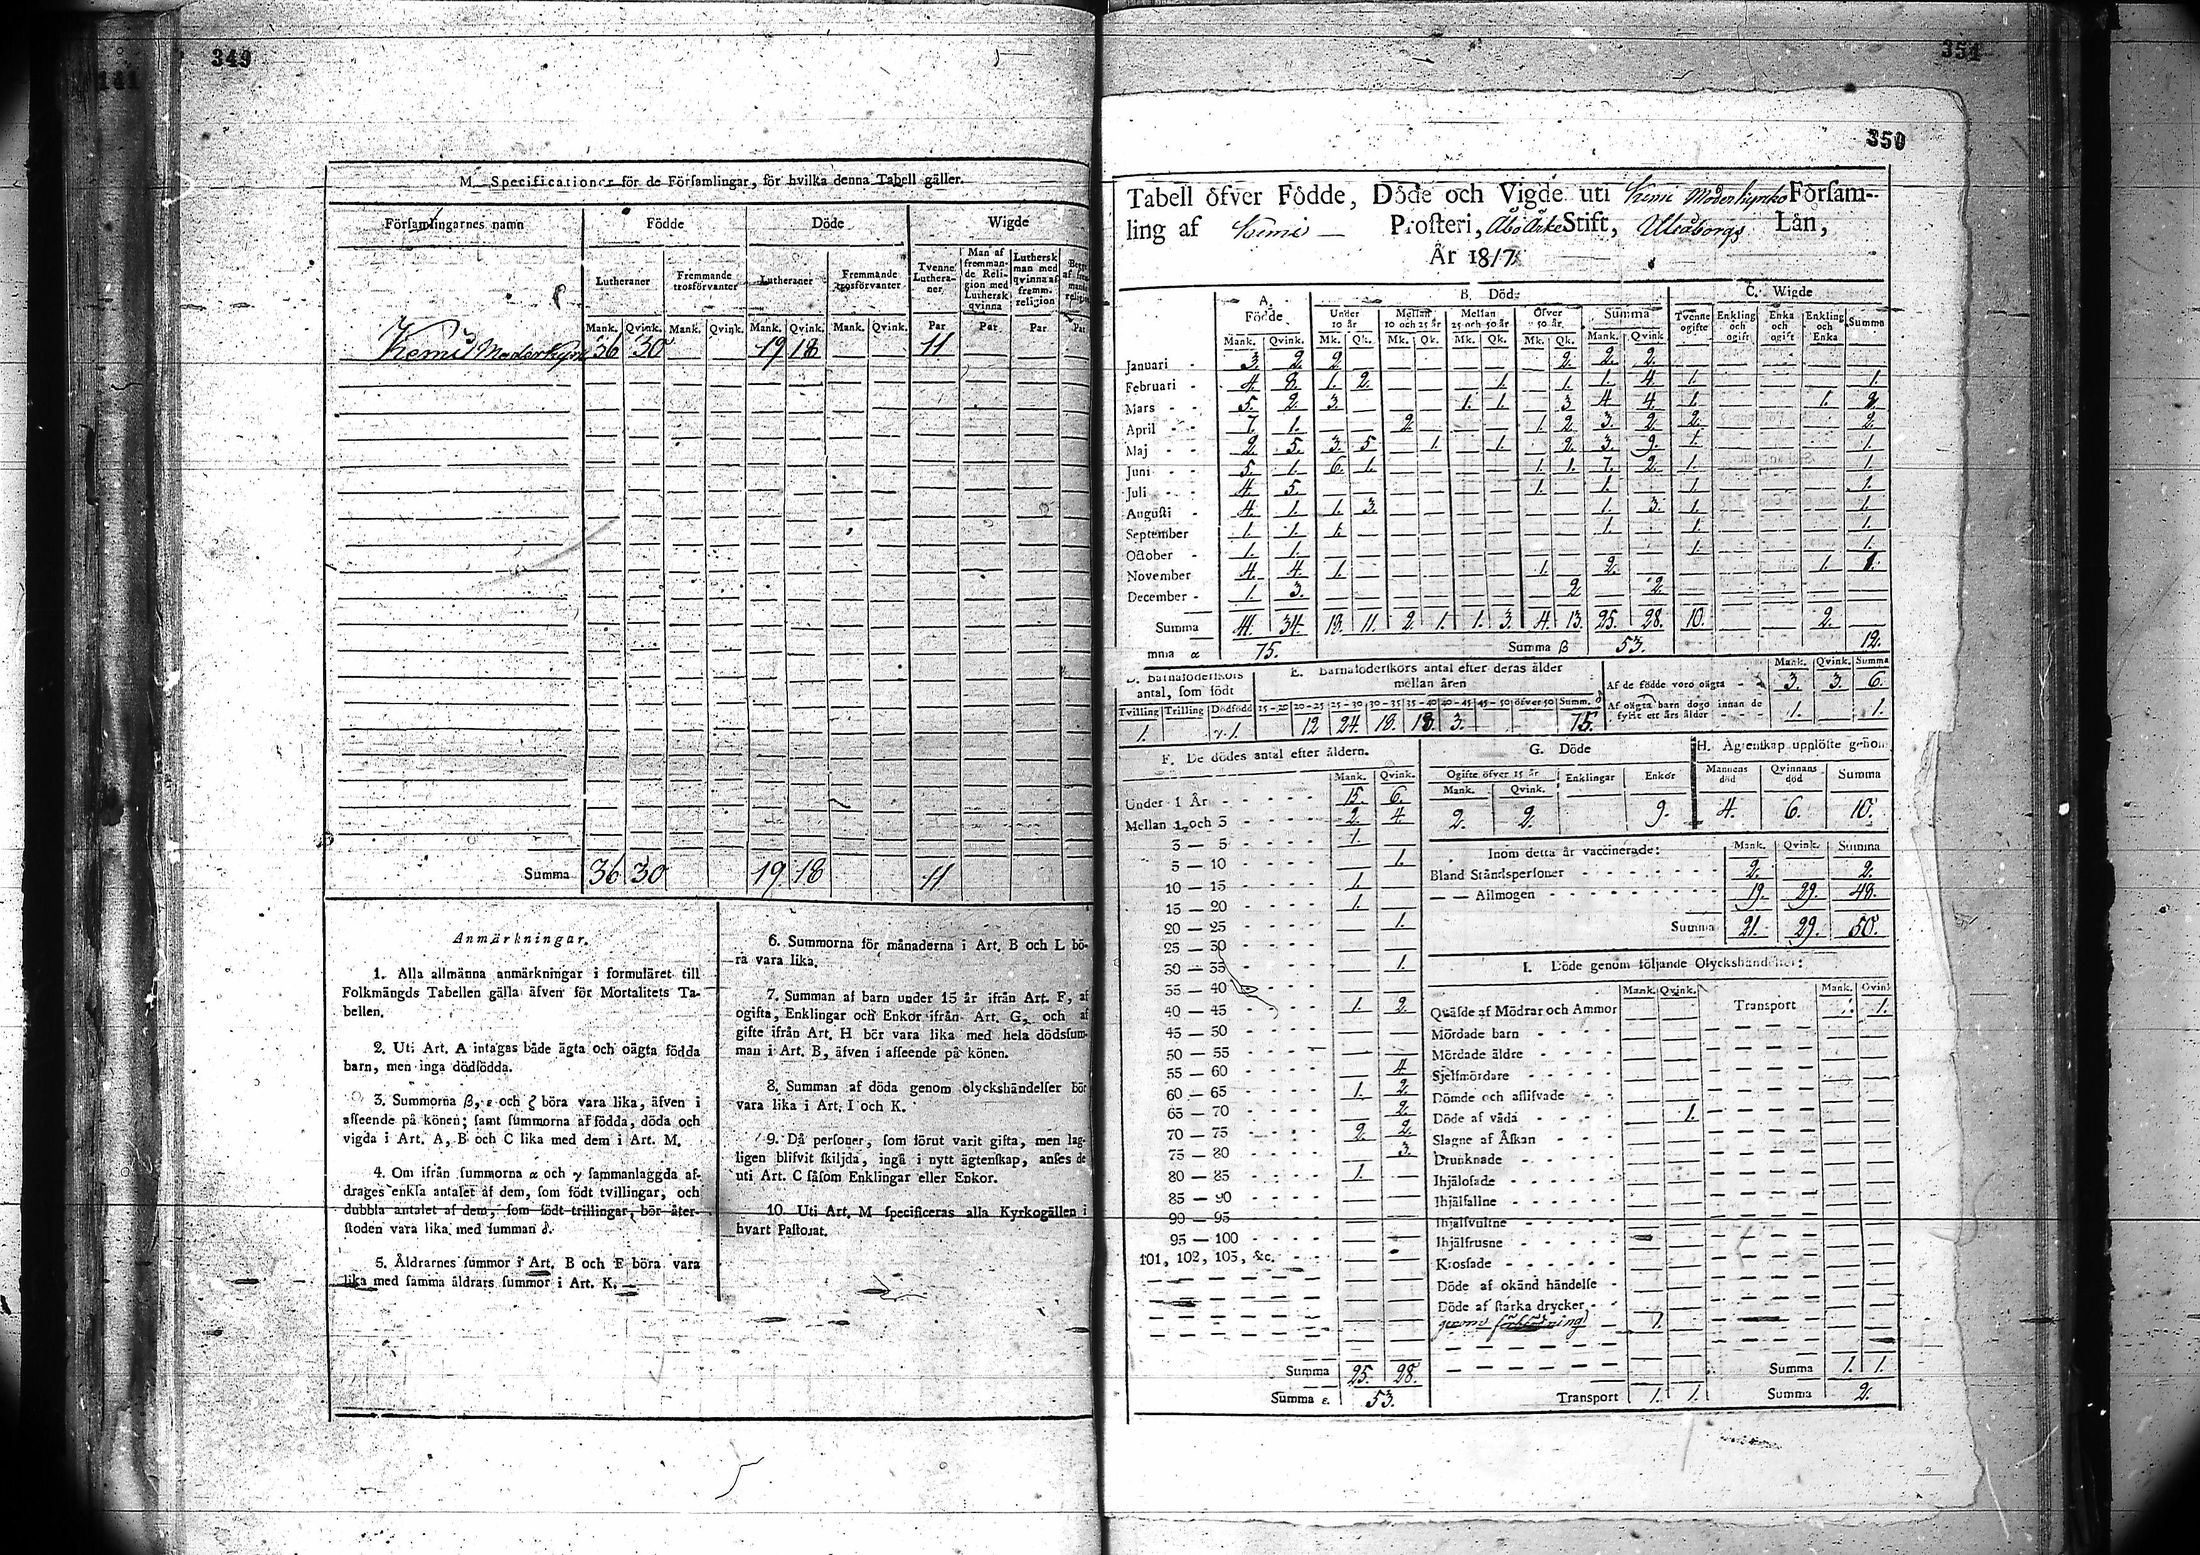 349
141
M. Specificationer för de Församlingar, för hvilka denna Tabell gäller.
Församlingarnes namn Födde Döde Wigde
Lutheraner Fremmande trosförvanter Lutheraner Fremmande trosförvanter Tvenne Lutheraner Man af fremmande Religion med Luthersk qvinna Luthersk man med qvinna af fremm. religion
Mank. Qvink. Mank. Qvink. Mank. Qvink. Mank. Qvink. Par Par Par Par
Kemi Moderkyrk 36 30 19 18 11
Summa 36 30 19 18 11
Anmärkningar.
1. Alla allmänna anmärkningar i formuläret till
Folkmängds Tabellen gälla äfven för Mortalitets Ta-
bellen.
2. Uti Art. A intagas både ägta och oägta födda
barn, men inga dödfödda.
3. Summorna β, ε och ζ böra vara lika, äfven i
afseende på könen; samt summorna af födda, döda och
vigda i Art. A, B och C lika med dem i Art. M.
4. Om ifrån summorna α och γ sammanlaggda af-
drages enkla antalet af dem, som födt tvillingar, och
dubbla antalet af dem, som födt trillingar, bör åter-
stoden vara lika med summan δ.
5. Åldrarnes summor i Art. B och F böra vara
lika med samma åldrars summor i Art. K.
6. Summorna för månaderna i Art. B och L bö-
ra vara lika.
7. Summan af barn under 15 år ifrån Art. F, af
ogifta, Enklingar och Enkor ifrån Art. G, och af
gifte ifrån Art. H bör vara lika med hela dödssum-
man i Art. B, äfven i afseende på könen.
8. Summan af döda genom olyckshändelser bör
vara lika i Art. I och K.
9. Då personer, som förut varit gifta, men lag-
ligen blifvit skiljda, ingå i nytt ägtenskap, anses de
uti Art. C såsom Enklingar eller Enkor.
10. Uti Art. M specificeras alla Kyrkogällen i
hvart Pastorat.
351
350
Tabell öfver Födde, Döde och Vigde uti Kemi Moderkyrko Försam-
ling af Kemi Prosteri, Åbo Ärke Stift, Uleåborgs Län,
År 1817.
A. Födde B. Döde C. Wigde
Under 10 år Mellan 10 och 25 år Mellan 25 och 50 år Öfver 50 år Summa Tvenne ogifte Enkling och ogift Enka och ogift Enkling och Enka Summa
Mank. Qvink. Mk. Qk. Mk. Qk. Mk. Qk. Mk. Qk. Mank. Qvink
Januari 3. 2. 2. 2. 2. 2.
Februari 4. 8. 1. 2. 1. 1. 1. 4. 1. 1.
Mars 5. 2. 3. 1. 1. 3 4 4. 1. 1. 2.
April 7. 1. 2. 1. 2. 3. 2. 2. 2.
Maj 2. 5. 3. 5. 1. 1. 2. 3. 9. 1. 1.
Juni 5. 1. 6. 1. 1. 1. 7. 2. 1. 1.
Juli 4. 5. 1. 1. 1. 1.
Augusti 4. 1. 1. 3. 1. 3. 1. 1.
September 1. 1. 1. 1. 1. 1.
October 1. 1. 1. 1.
November 4. 4. 1. 1. 2. 1. 1.
December 1. 3. 2. 2.
Summa 41. 34. 18. 11. 2. 1. 1. 3. 4. 13. 25. 28. 10. 2.
mma α 75. Summa β 53. 12.
D. Barnaföderskors antal, som födt
E. Barnaföderskors antal efter deras ålder mellan åren
Mank. Qvink. Summa
Af de födde voro oägta 3. 3. 6.
Af oägta barn dogo innan de fyllt ett års ålder 1. 1.
Tvilling Trilling Dödfödd 15-20 20-25 25-30 30-35 35-40 40-45 45-50 öfver 50 Summ. δ
1. γ 1. 12 24. 18. 18. 3. 75.
F. De dödes antal efter åldern.
Mank. Qvink.
Under 1 År 15. 6.
Mellan 1 och 3 2. 4.
3 — 5 1.
5 — 10 1.
10 — 15 1.
15 — 20 1.
20 — 25 1.
25 — 30
30 — 35 1.
35 — 40
40 — 45 1. 2.
45 — 50
50 — 55
55 — 60 4
60 — 65 1. 2.
65 — 70 2.
70 — 75 2. 2.
75 — 80 3.
80 — 85 1.
85 — 90
90 — 95
95 — 100
101, 102, 103, &c.
Summa 25. 28.
Summa ε. 53.
G. Döde
Ogifte öfver 15 år Enklingar Enkor
Mank. Qvink.
2. 2. 9.
H. Ägtenskap upplöste genom
Mannens död Qvinnans död Summa
4. 6. 10.
Inom detta år vaccinerade: Mank. Qvink. Summa
Bland Ståndspersoner 2. 2.
— — Allmogen 19. 29. 48.
Summa 21. 29. 50.
I. Döde genom följande Olyckshändelser:
Mank. Qvink. Mank. Qvink
Qväfde af Mödrar och Ammor Transport 1. 1.
Mördade barn
Mördade äldre
Sjelfmördare
Dömde och aflifvade
Döde af våda 1.
Slagne af Åskan
Drunknade
Ihjälofade
Ihjälfallne
Ihjälsvultne
Ihjälfrusne
Krossade
Döde af okänd händelse
Döde af starka drycker
1.
Summa 1. 1.
Transport 1. 1. Summa 2.